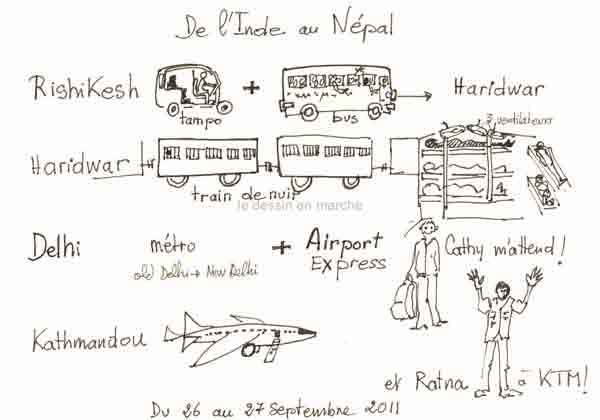 De l'Inde au Népal
RishiKesh + Haridwar
tampo bus
3 ventilateurs
Haridwar
train de nuit
le dessin en marche
Delhi métro + Airport Express
old Delhi → New Delhi
Cathy m'attend !
Kathmandou
et Ratna à KTM!
Du 26 au 27 Septembre 2011